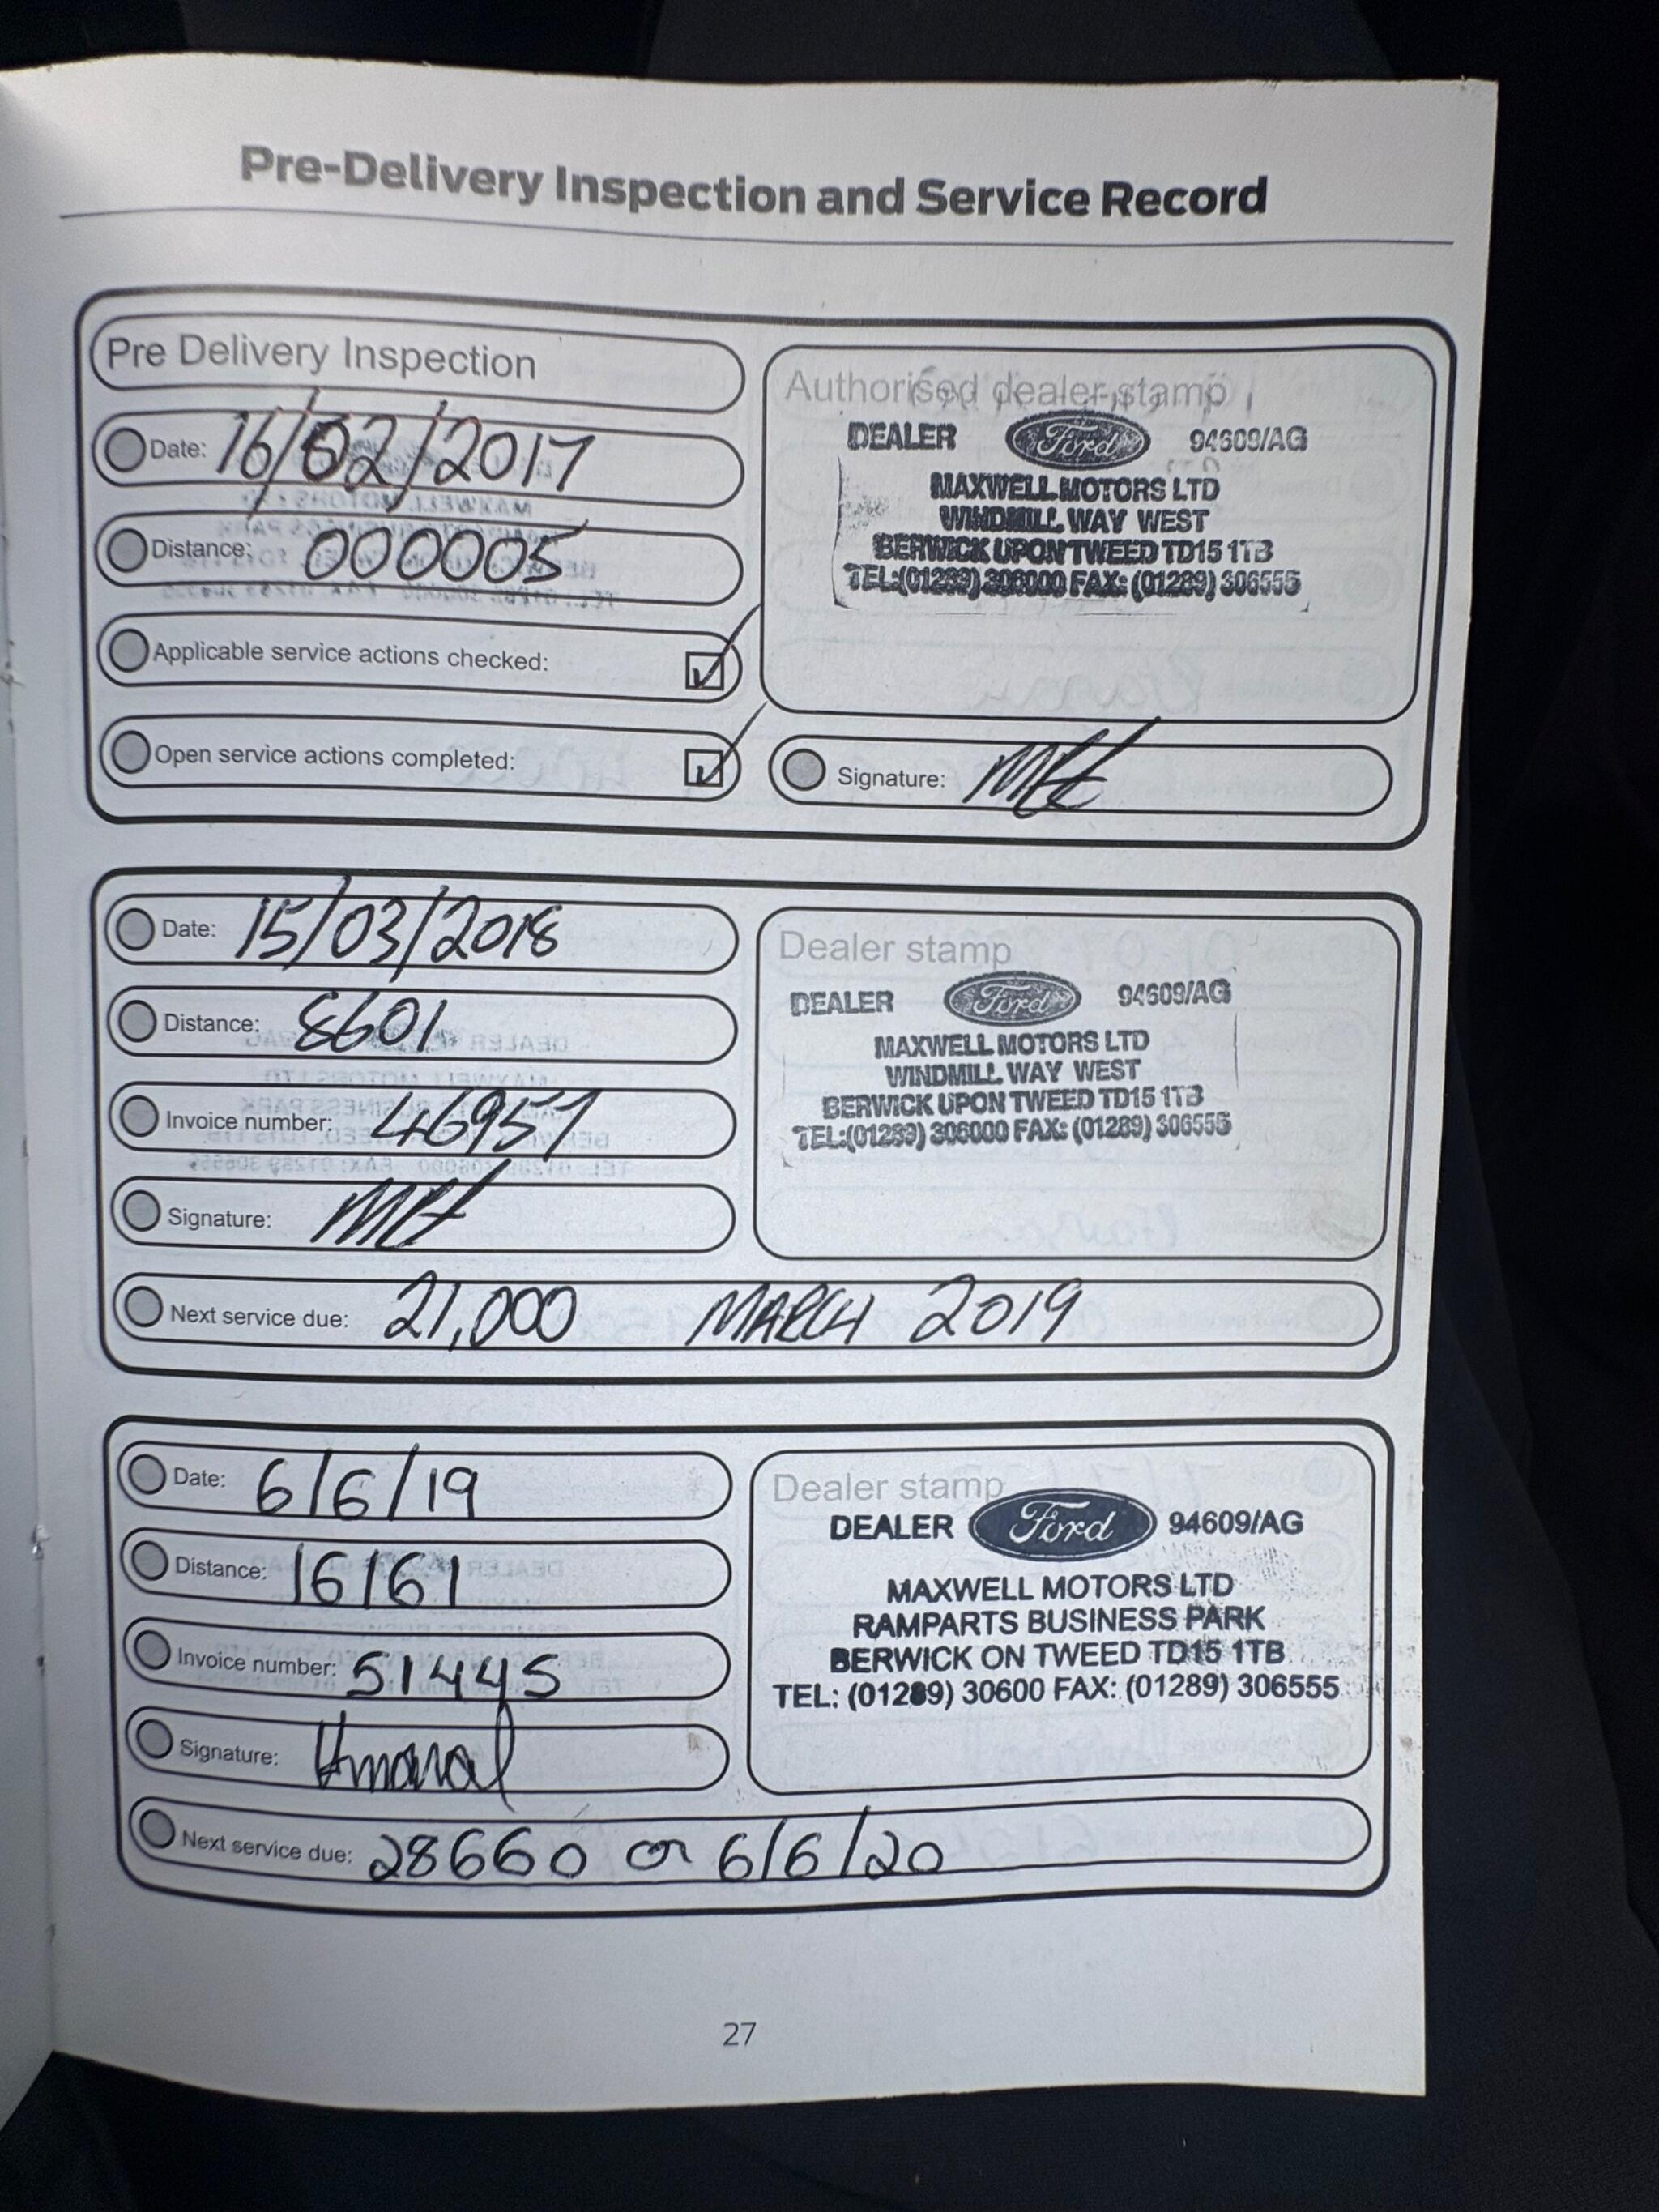 Pre-Delivery Inspection and Service Record
Pre Delivery Inspection
Date: 16/02/2017
Distance: 000005
Applicable service actions checked:
Open service actions completed:
Authorised dealer stamp
DEALER Ford 94609/AG
MAXWELL MOTORS LTD
WINDMILL WAY WEST
BERWICK UPON TWEED TD15 1TB
TEL:(01289) 306000 FAX: (01289) 306555
Signature:
Date: 15/03/2018
Distance: 8601
Invoice number: 46957
Signature:
Next service due: 21,000 MARCH 2019
Dealer stamp
DEALER Ford 94609/AG
MAXWELL MOTORS LTD
WINDMILL WAY WEST
BERWICK UPON TWEED TD15 1TB
TEL:(01289) 306000 FAX: (01289) 306555
Date: 6/6/19
Distance: 16161
Invoice number: 51445
Signature:
Next service due: 28660 or 6/6/20
Dealer stamp
DEALER Ford 94609/AG
MAXWELL MOTORS LTD
RAMPARTS BUSINESS PARK
BERWICK ON TWEED TD15 1TB
TEL: (01289) 30600 FAX: (01289) 306555
27